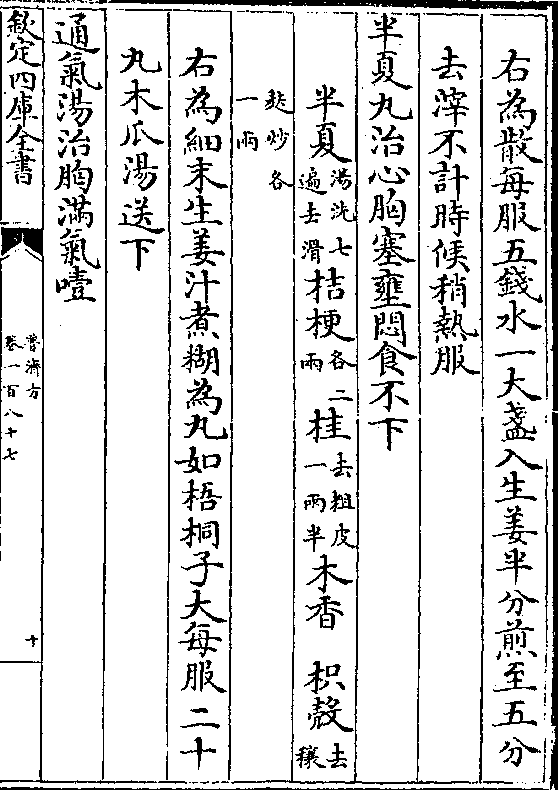 右為散每服五錢水一大盞入生姜半分煎至五分
去滓不計時候稍熱服
半夏丸治心胸塞壅悶食不下
半夏湯洗七遍去滑桔梗各二兩桂去粗皮一兩半木香 枳殼去穰
麩炒各一兩
右為細末生姜汁煮糊為丸如梧桐子大每服二十
丸木瓜湯送下
通氣湯治胸滿氣噎
欽定四庫全書
普濟方
卷一百八十七
十